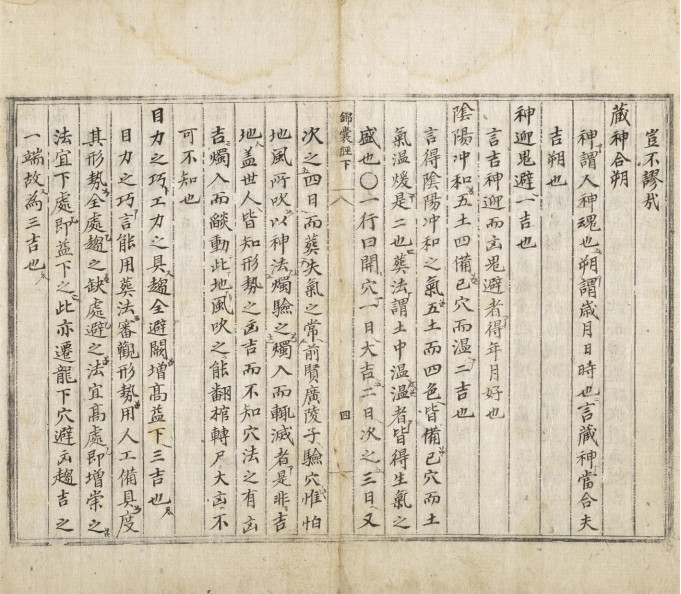 豈不謬哉
蔵神合朔
神謂人神魂也朔謂歳月日時也言蔵神當合夫
吉朔也
神迎鬼避一吉也
言吉神迎而凶鬼避者得年月好也
陰陽冲和五土四備已穴而温二吉也
言得陰陽冲和之氣五土而四色皆備已穴而土
氣温煖是二也葬法謂土中温温者皆得生氣之
盛也〇一行曰開穴一日大吉二日次之三日又
錦囊經下
四
次之四日而葬失氣之常前賢廣陵子驗穴惟怕
地風所吹以神法燭驗之燭入而輒滅者是非吉
地盖世人皆知形勢之凶吉而不知穴法之有凶
吉燭入而燄動此地風吹之能翻棺轉尸大凶不
可不知也
目力之巧工力之具趨全避闕增髙益下三吉也
目力之巧言能用葬法審觀形勢用人工備具度
其形勢全處趨之缺處避之法宜髙處即增崇之
法宜下處即益下之此亦遷龍下穴避凶趨吉之
一端故為三吉也